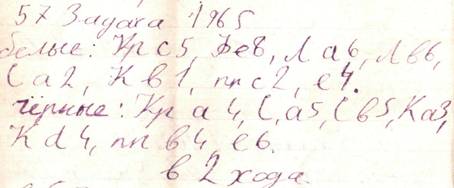 57 Задача 1965
белые: Кр с5, Фе8, Л а6, Л в6,
С а2, К в1, пп с2, е4.
чёрные: Кр а4, С, а5, С в5, Ка3,
К d4, пп в4, е6.
в 2 хода.